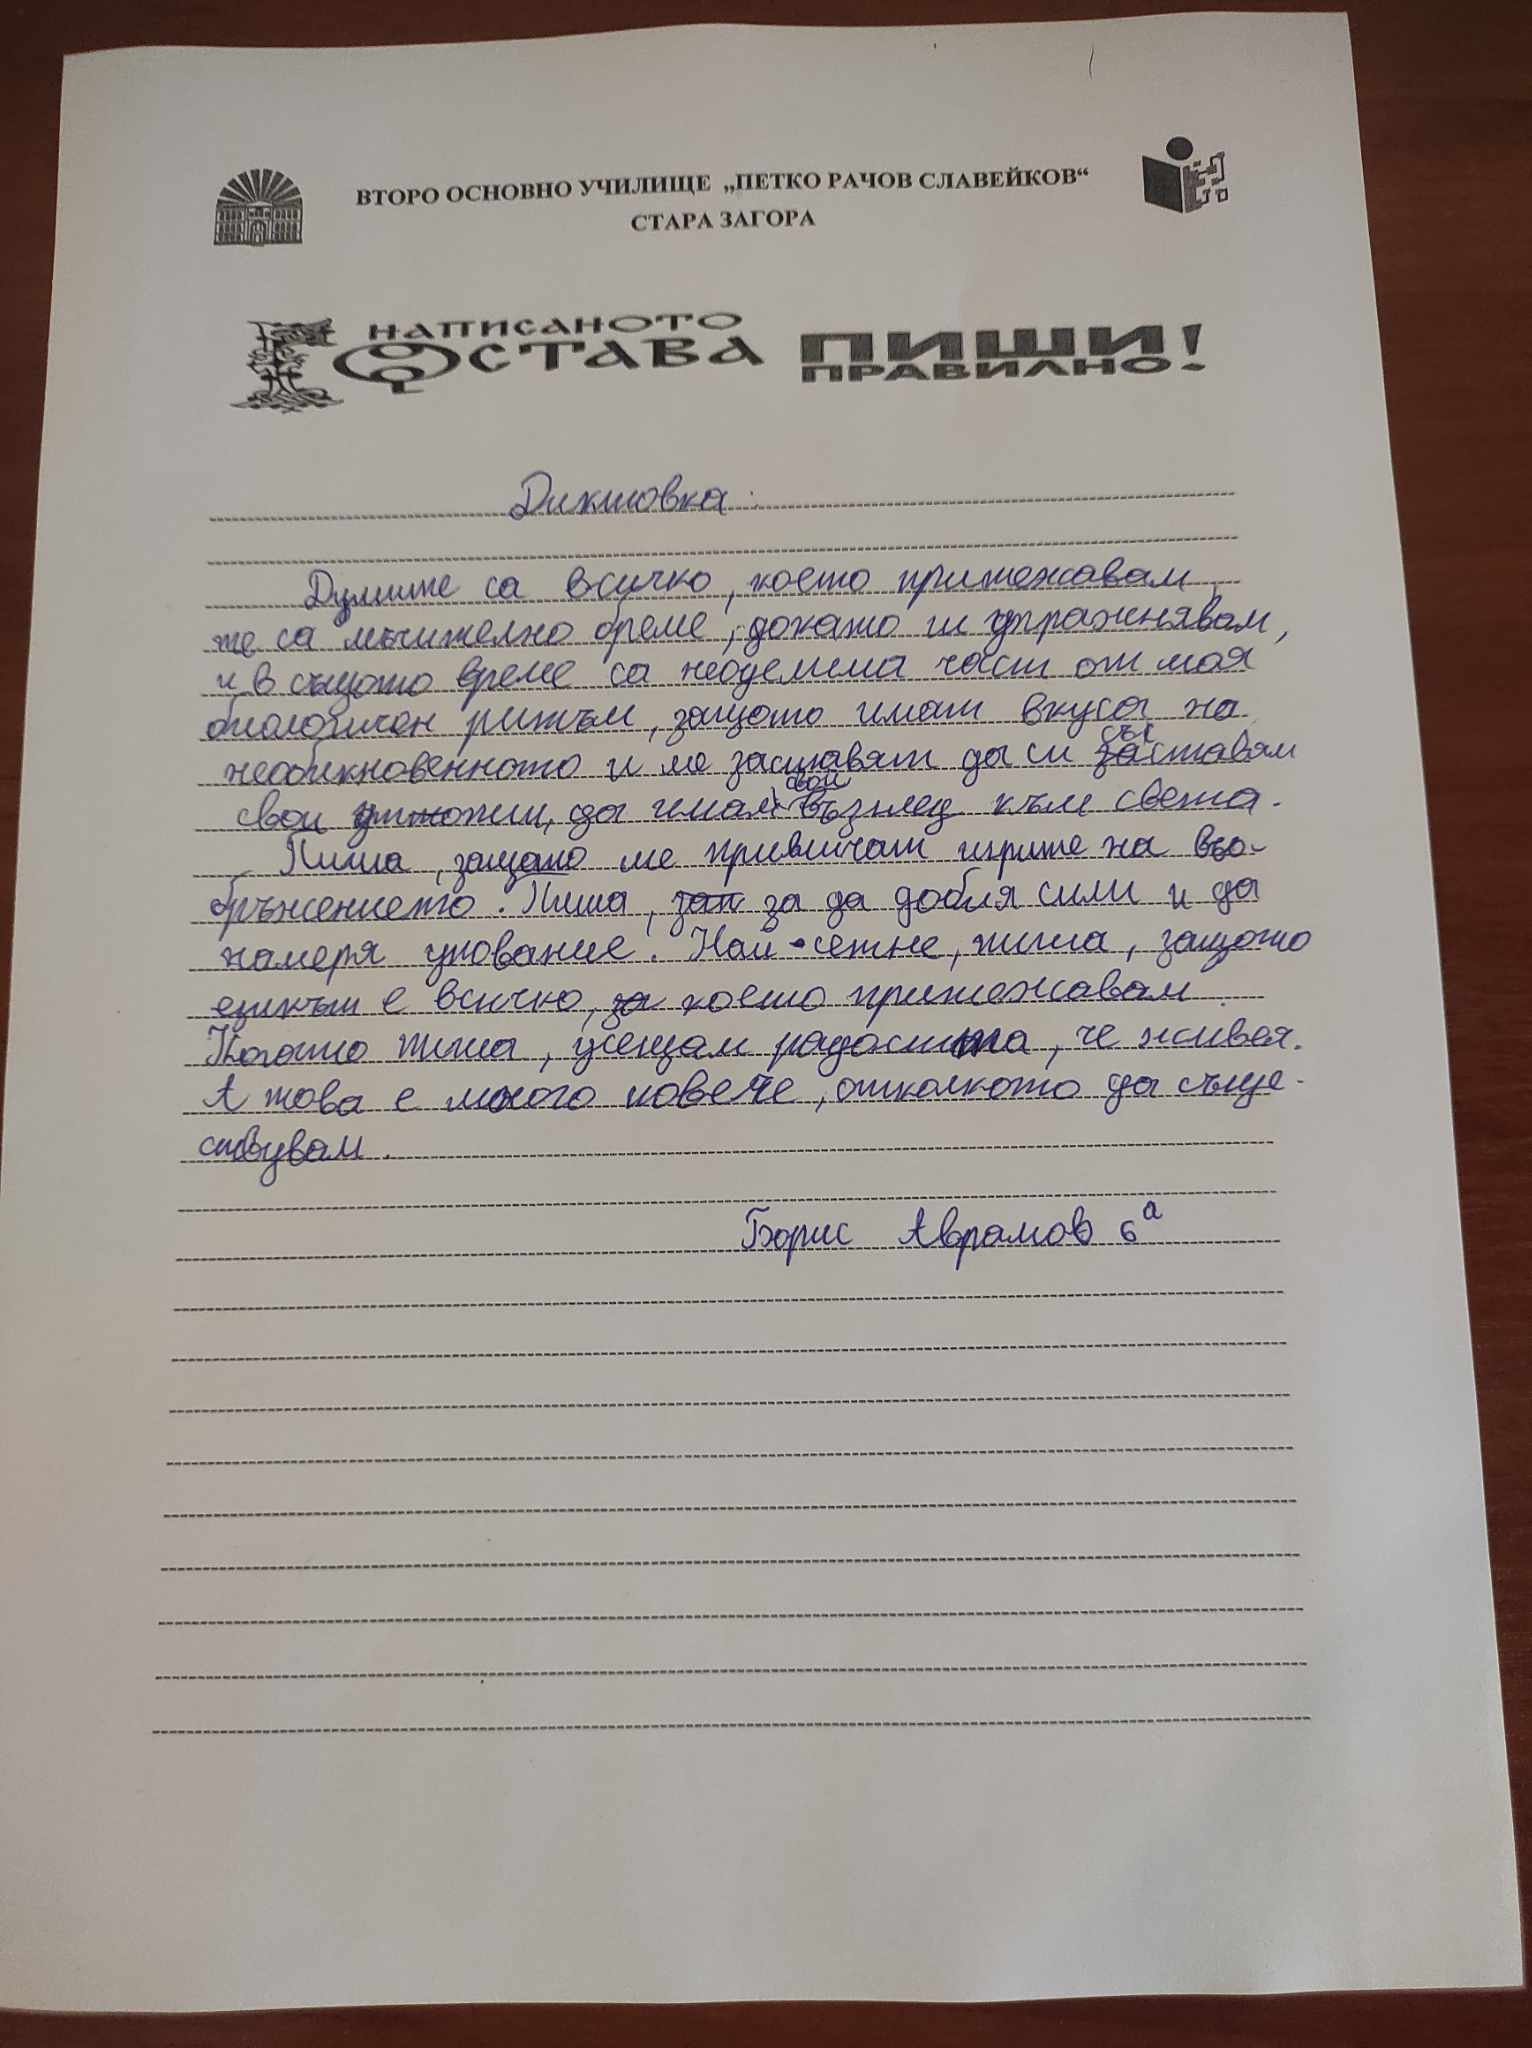 ВТОРО ОСНОВНО УЧИЛИЩЕ „ПЕТКО РАЧОВ СЛАВЕЙКОВ“
СТАРА ЗАГОРА
НАПИСАНОТО
ОСТАВА
ПИШИ
ПРАВИЛНО!
Диктовка
Думите са всичко, което притежавам,
те са мъчително бреме, докато ги упражнявам,
и в същото време са неделима част от моя
биологичен ритъм, защото имат вкуса на
необикновенното и ме заставят да си съставям
свои, да имам свой възглед към света.
Пиша, защото ме привличат игрите на въо-
бръжението. Пиша, за да добия сили и да
намеря упование. Най-сетне, пиша, защото
езикът е всичко, което притежавам.
Когато пиша, усещам радостта, че живея.
А това е много повече, отколкото да съще-
ствувам.
Борис Аврамов 6а